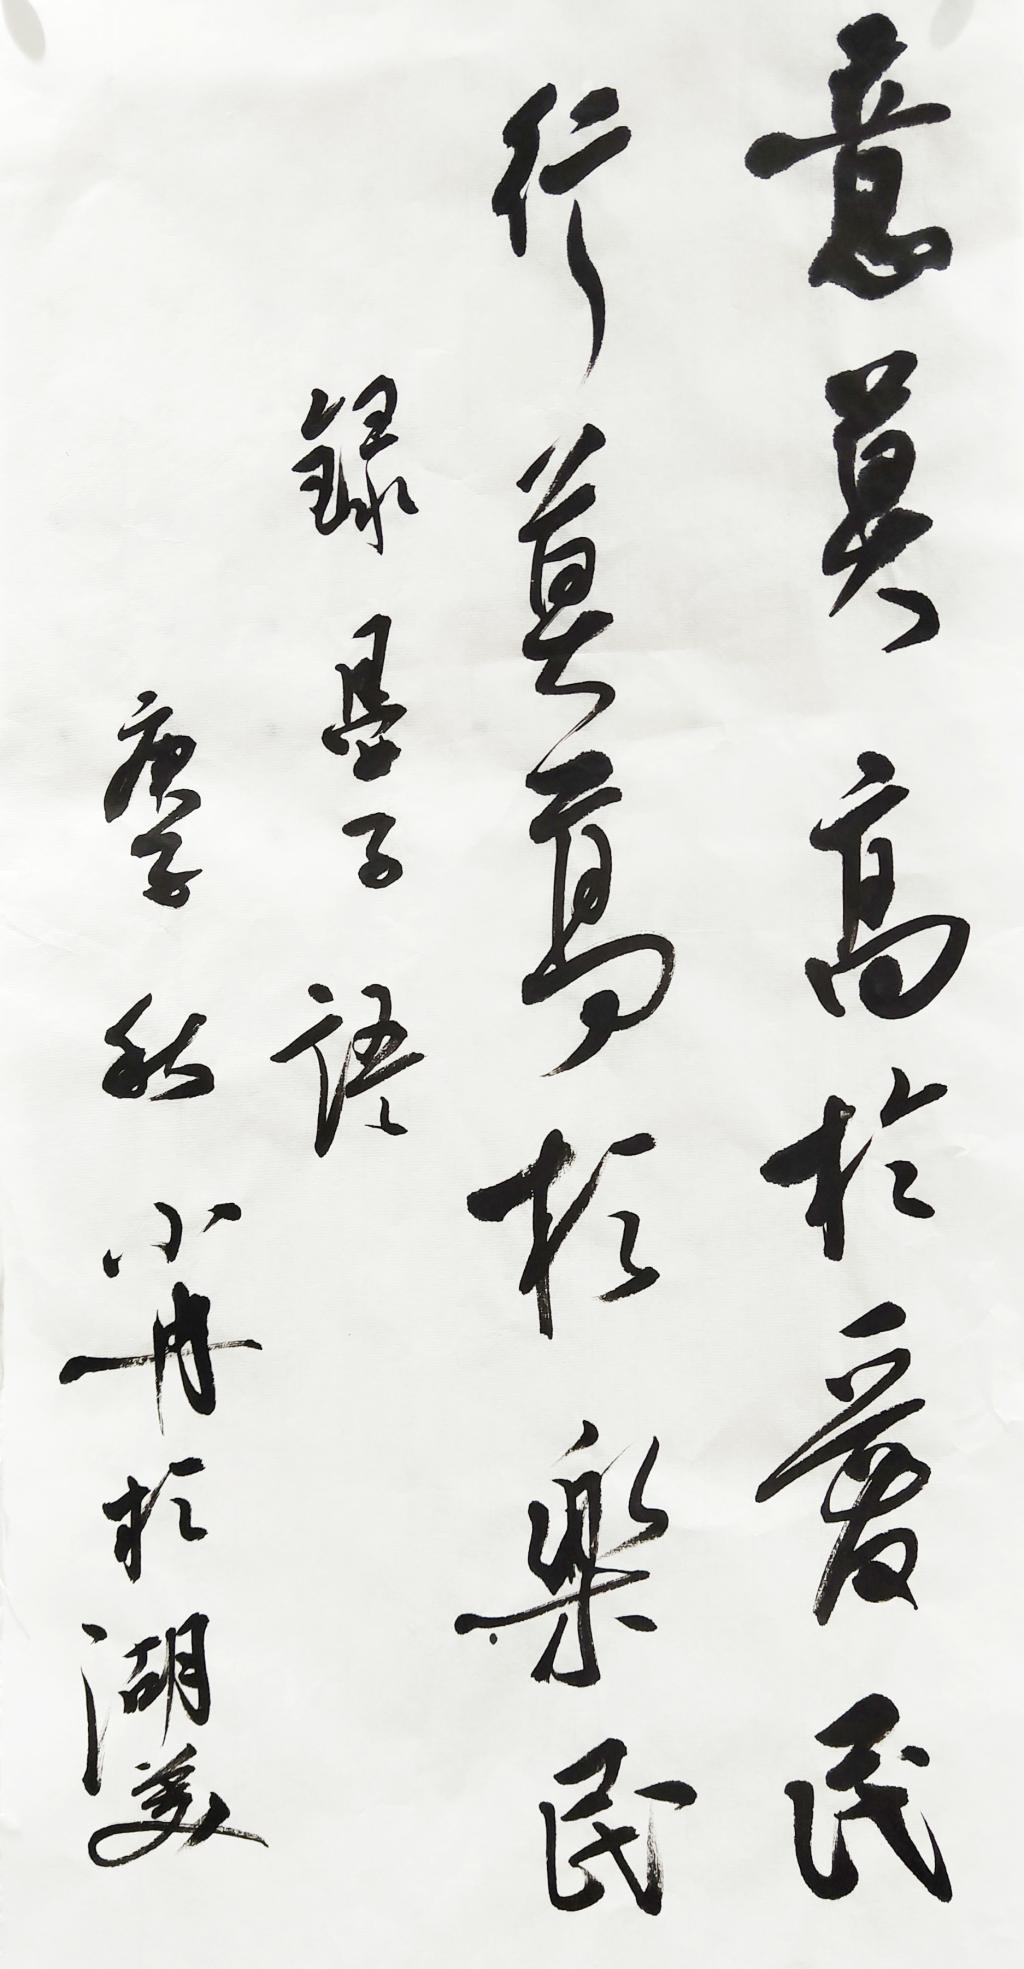 意莫高於愛民
行莫高於樂民
錄晏子語
庚子秋小冉於湖美